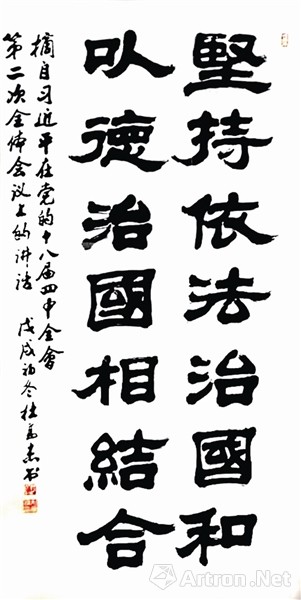 堅持依法治國和
以德治國相結合
摘自习近平在党的十八届四中全會
第二次全体会议上的讲话
戊戌初冬杜高杰书
Artron.Net